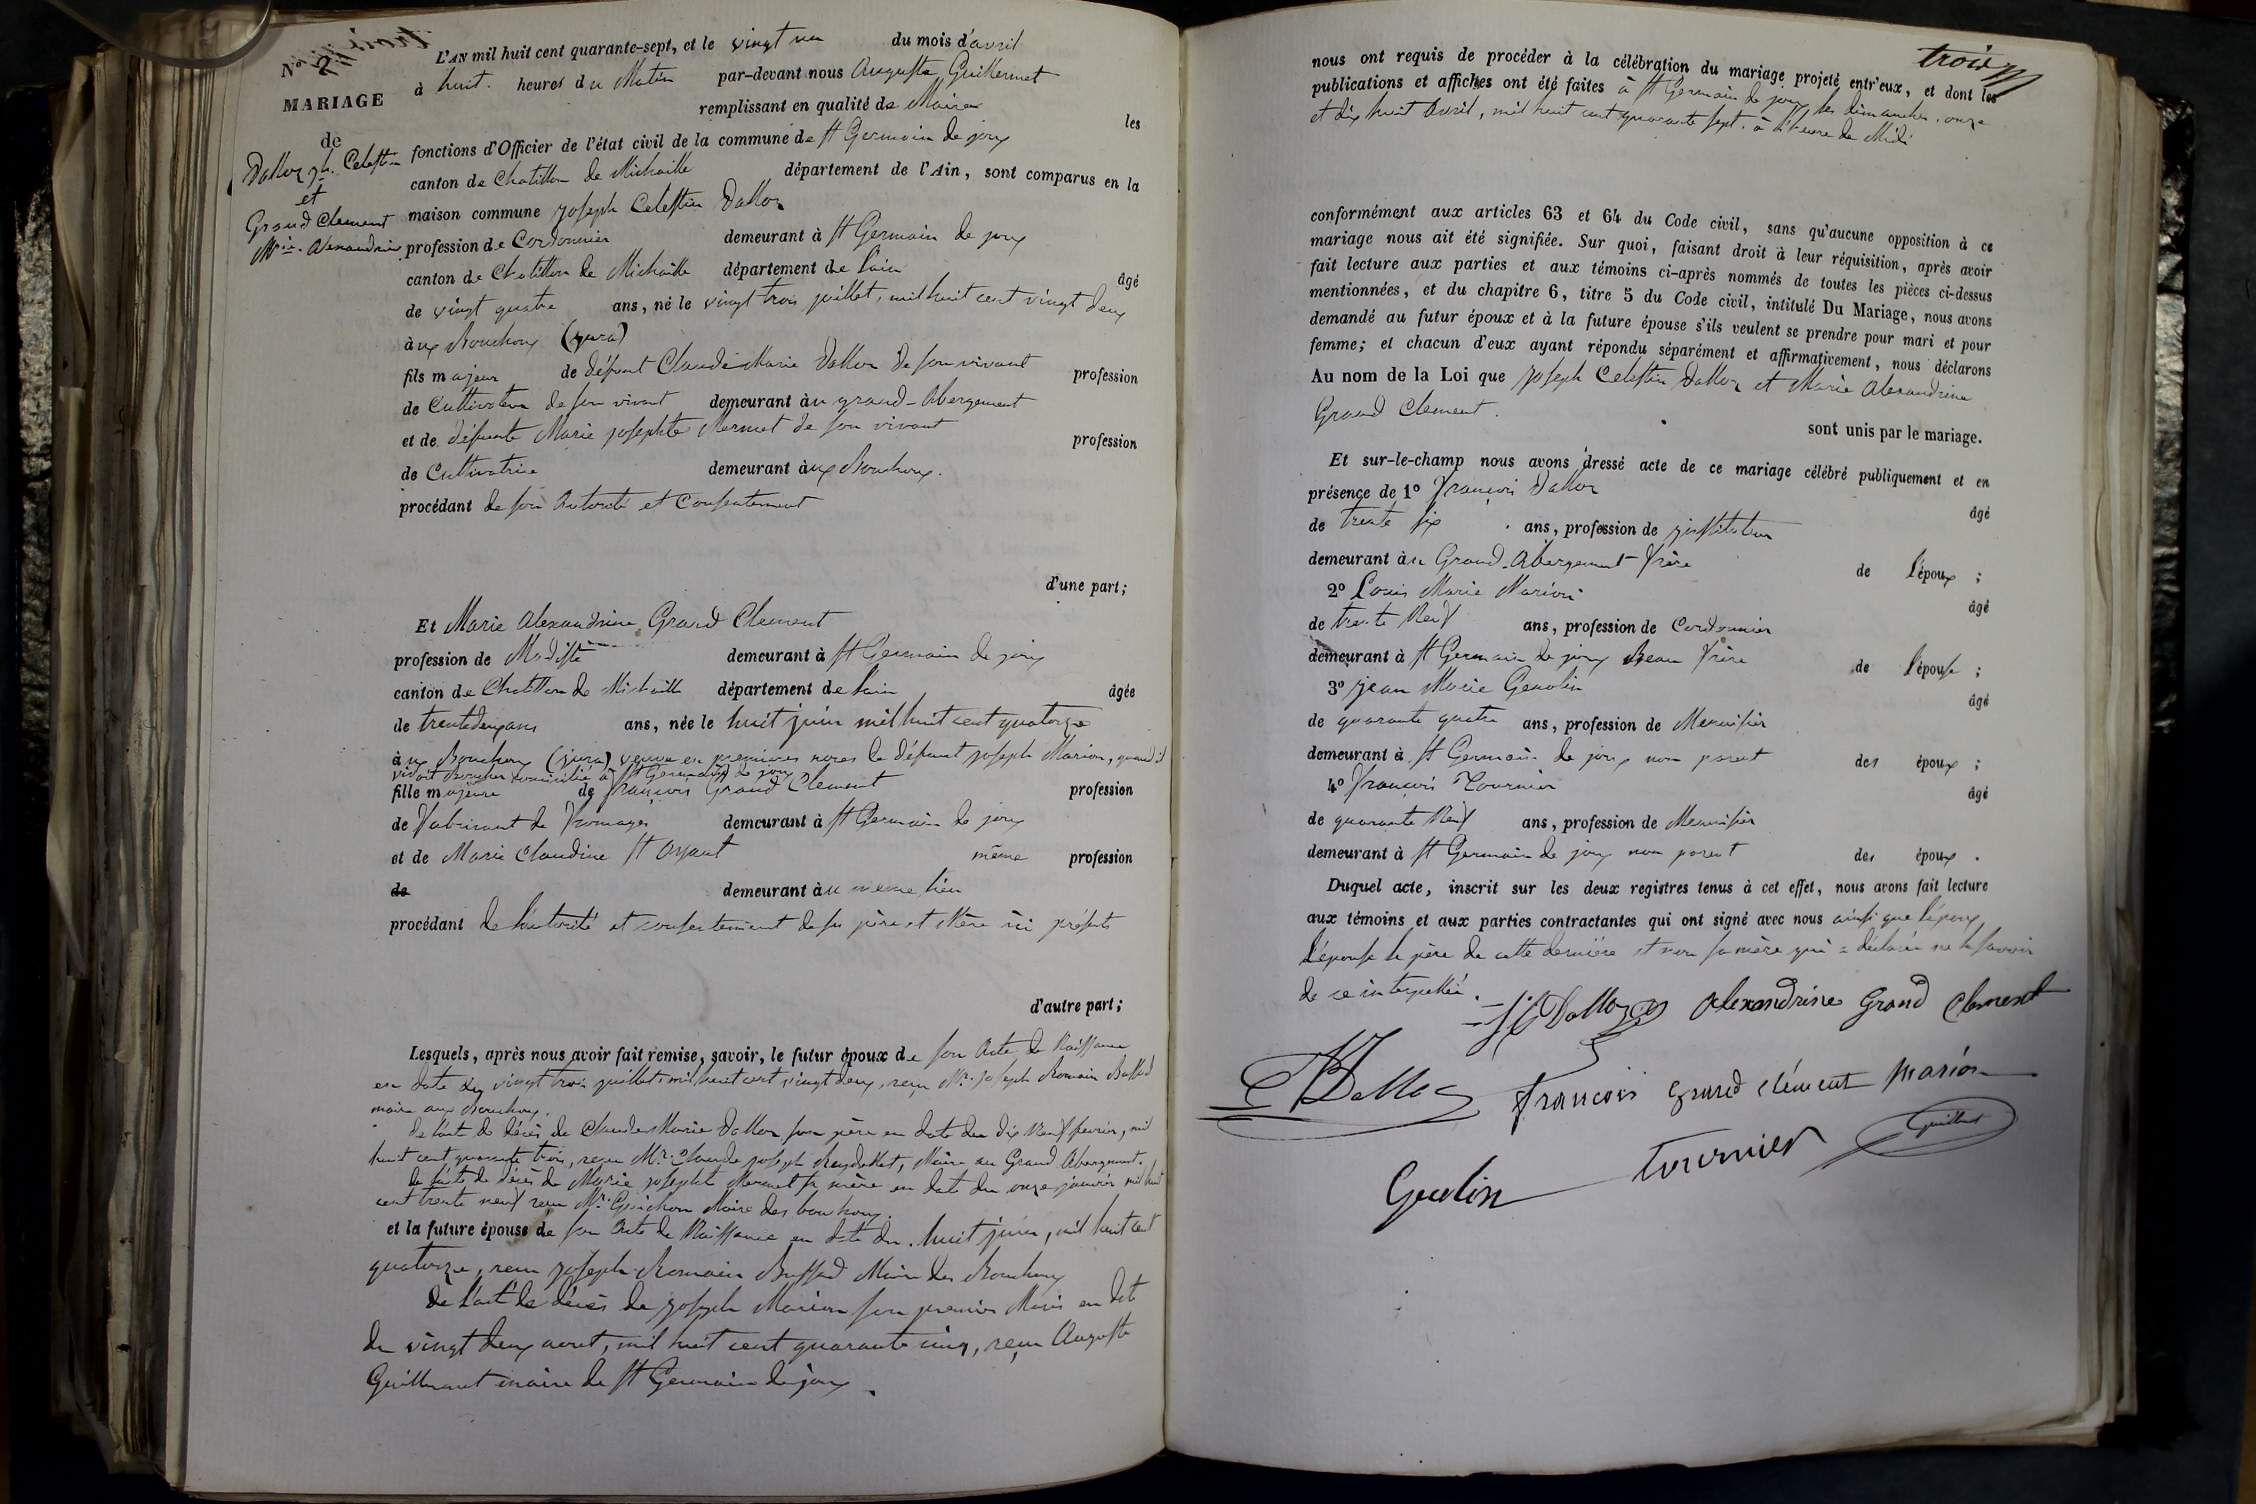 N° 5
MARIAGE
de
Dalloz jh. Celestin
et
Grand Clement
Mrie. Alexandrine
L'AN mil huit cent quarante-sept, et le vingt un du mois d'avril
à huit heures du Matin par-devant nous Auguste Guillermet
remplissant en qualité de Maire les
fonctions d'Officier de l'état civil de la commune de St Germain de joux
canton de Chatillon de Michaille département de l'Ain, sont comparus en la
maison commune joseph Celestin Dalloz
profession de Cordonnier demeurant à St Germain de joux
canton de Chatillon de Michaille département de l'ain âgé
de vingt quatre ans, né le vingt trois juillet, mil huit cent vingt deux
àux Bouchoux (jura)
fils majeur de défunt Claude Marie Dalloz de son vivant profession
de Cultivateur de son vivant demeurant àu grand-Abergement
et de défunte Marie josephte Mermet de son vivant profession
de Cultivatrice demeurant àux Bouchoux.
procédant de son Autorité et Consentement
d'une part;
Et Marie Alexandrine Grand Clement
profession de Modiste demeurant à St Germain de joux
canton de Chatillon de Michaille département de l'ain âgée
de trente deux ans ans, née le huit juin mil huit cent quatorze
àux Bouchoux (jura) veuve en premieres noces de défunt joseph Marion, quand il
vivait Boucher domicilié à St Germain de joux
fille majeure de François Grand Clement profession
de Fabricant de Fromages demeurant à St Germain de joux
et de Marie Claudine St Oyant même profession
de demeurant àu même lieu
procédant de l'autorité et consentement de ses père et Mère ici présents
d'autre part;
Lesquels, après nous avoir fait remise, savoir, le futur époux de son Acte de Naissance
en date du vingt trois juillet mil huit cent vingt deux, reçu Mr. joseph Romain Buffard
maire aux Bouchoux.
de l'acte de décès de Claude Marie Dalloz son père en date du dix Neuf fevrier, mil
huit cent quarante trois, reçu Mr. Claude joseph Reydellet, Maire au Grand Abergement.
de l'acte de décès de Marie josephte Mermet sa mère en date du onze janvier mil huit
cent trente neuf reçu Mr. Guichon Maire des bouchoux.
et la future épouse de son Acte de Naissance en date du huit juin, mil huit cent
quatorze, reçu joseph Romain Buffard Maire des Bouchoux
de l'acte de décès de joseph Marion son premier Maris en date
du vingt deux aout, mil huit cent quarante cinq, reçu Auguste
Guillermet maire de St Germain de joux.
trois
nous ont requis de procéder à la célébration du mariage projeté entr'eux, et dont les
publications et affiches ont été faites à St Germain de joux les dimanches onze
et dix huit Avril, mil huit cent quarante sept. à l'heure de Midi
conformément aux articles 63 et 64 du Code civil, sans qu'aucune opposition à ce
mariage nous ait été signifiée. Sur quoi, faisant droit à leur réquisition, après avoir
fait lecture aux parties et aux témoins ci-après nommés de toutes les pièces ci-dessus
mentionnées, et du chapitre 6, titre 5 du Code civil, intitulé Du Mariage, nous avons
demandé au futur époux et à la future épouse s'ils veulent se prendre pour mari et pour
femme; et chacun d'eux ayant répondu séparément et affirmativement, nous déclarons
Au nom de la Loi que joseph Celestin Dalloz et Marie Alexandrine
Grand Clement.
sont unis par le mariage.
Et sur-le-champ nous avons dressé acte de ce mariage célébré publiquement et en
présence de 1° François Dalloz âgé
de trente six ans, profession de jnstituteur
demeurant àu Grand-Abergement frère de l'époux ;
2° Louis Marie Marion âgé
de trente Neuf ans, profession de Cordonnier
demeurant à St Germain de joux Beau frère de l'épouse ;
3° jean Marie Genolin âgé
de quarante quatre ans, profession de Menuisier
demeurant à St Germain de joux non parent des époux ;
4° François Tournier âgé
de quarante Neuf ans, profession de Menuisier
demeurant à St Germain de joux non parent des époux .
Duquel acte, inscrit sur les deux registres tenus à cet effet, nous avons fait lecture
aux témoins et aux parties contractantes qui ont signé avec nous ainsi que l'époux
l'épouse le père de cette dernière et non sa mère qui a déclaré ne le savoir
de ce interpellée.
JC Dalloz Alexandrine Grand Clement
Dalloz françois grand clément Marion
Genolin tournier Guillermet